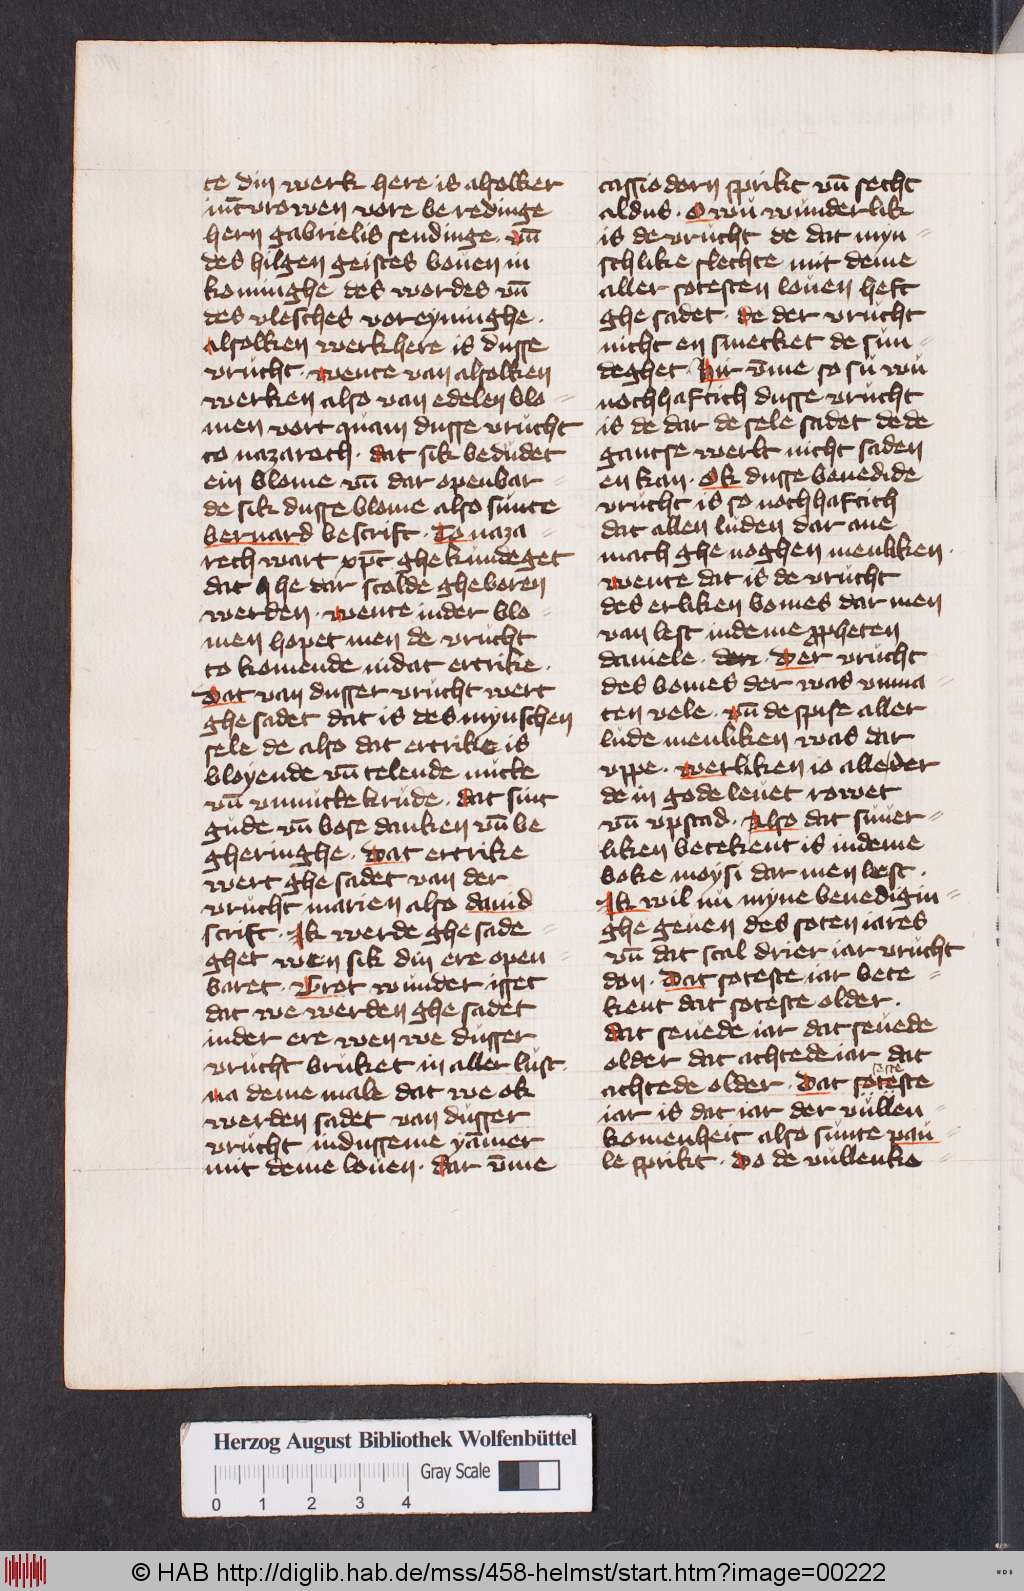 te din werk here is alsolker
iūcvrowen vore beredinge
hern gabrielis sendinge. vn̄
des hilgen geistes bouen in
kominghe des wordes vn̄
des vlesches voreyninghe.
alsolken werk here is dusse
vrucht. wente van alsolken
werken also van edelen blo=
men vort quam dusse vrucht
to nazaroth. dat sik bedudet
ein blome vn̄ dar openbar=
de sik dusse blome also sunte
bernard bescrift. To naza=
rech wart xp̄c ghekundeget
dat he dar scolde gheboren
werden. wente in der blo=
men hopet men de vrucht
to komende in dat ertrike.
Dat van dusser vrucht wert
ghesadet dat is des mynschen
sele de also dat ertrike is
bloyende vn̄ telende nutte
vn̄ vnnutte krude. dat sint
gude vn̄ bose danken vn̄ be
gheringhe. Dat ertrike
wert ghesadet van der
vrucht marien also dauid
scrift. Ik werde ghesade=
ghet wen sik din ere open=
baret. Grot wunder isset
dat we werden ghesadet
in der ere wen we dusser
vrucht bruket in aller lust.
na deme male dat we ok
werden sadet van dusser
vrucht in dusseme yāmer
mit deme louen. dar v̄me
cassiodorn sprikt vn̄ secht
aldus. O wu wunderlik
is de vrucht de dat myn=
schlike slechte mit deme
aller sotesten louen heft
ghesadet. de der vrucht
nicht en smecket de sun=
deghet. Hir v̄me so su wu
nochhaftich dusse vrucht
is de dar de sele sadet de de
gantse werlt nicht saden
en kan. Ok dusse benedide
vrucht is so nochhaftich
dat allen luden dar ane
mach ghenoghen menliken.
wente dat is de vrucht
des erliken bomes dar men
van lest in deme propheten
daniele. der. Der vrucht
des bomes der was vnma
ten vele. vn̄ de spise aller
lude menliken was dar
vppe. werliken io alle der
de in gode leuet rowet
vn̄ vpstad. Also dat suuer=
liken betekent is in deme
boke moysi dar men lest.
Ik wil nu myne benedigin=
ghe geuen des soten iares
vn̄ dat scal drier iar vrucht
don. Dat soteste iar bete=
kent dat soteste older.
dat seuede iar dat seuede
older dat achtede iar dat
achtede older. Dat soteste
seste
iar is dat iar der vullen=
komenheit also sunte pau=
le sprikt. Do de vullenko=
Herzog August Bibliothek Wolfenbüttel
Gray Scale
0 1 2 3 4
© HAB http://diglib.hab.de/mss/458-helmst/start.htm?image=00222